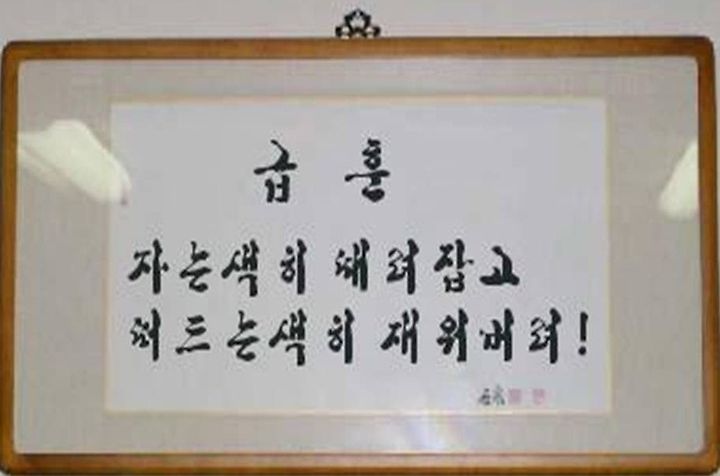 급 훈
자는색히 때려잡고
떠드는색히 재워버려!